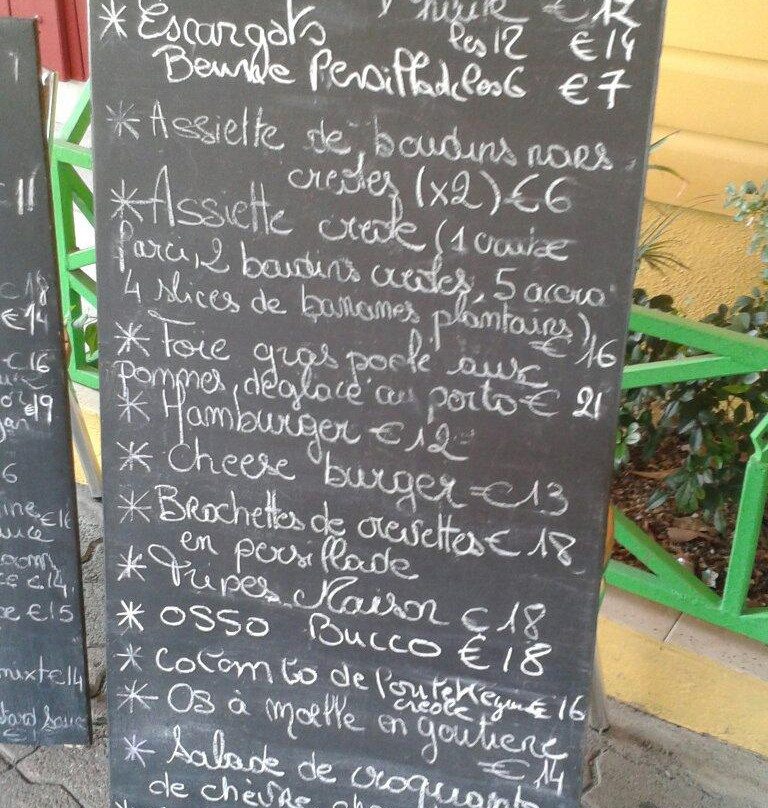 € 12
* Escargots les 12 € 14
Beurre Persillade les 6 € 7
* Assiette de boudins noirs
creoles (x2) € 6
* Assiette creole (1 
Farci, 2 boudins creoles, 5 accra
4 slices de bananes plantains)
€ 16
* Foie gras poele aux
pommes, déglacé au porto € 21
* Hamburger € 12
* Cheese burger € 13
* Brochettes de crevettes € 18
en persillade
* Tripes Maison € 18
* OSSO BUCCO € 18
* Colombo de Poulet € 16
creole
* OS à moelle en goutiere
€ 14
* Salade de croquants
de chèvre
11
€ 18
€ 14
€ 16
€ 19
6
€ 14
€ 15
mixte 14